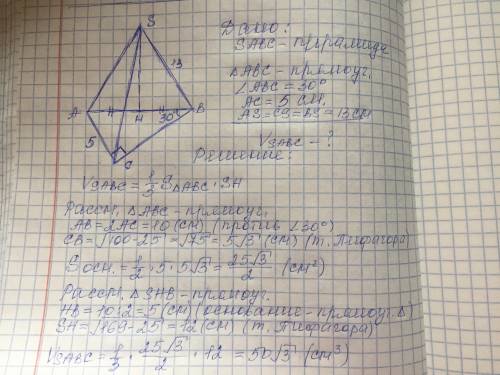 S
13
A
H
30°
B
5
C
Дано:
SABC - пирамида
△ABC - прямоуг.
∠ABC = 30°
AC = 5 см.
AS=CS=BS=13 см
VSABC - ?
Решение:
VSABC = 1/3 S△ABC · SH
Рассм. △ABC - прямоуг.
AB = 2AC = 10 (см) (против ∠30°)
CB = √100-25 = √75 = 5√3 (см) (т. Пифагора)
Sосн. = 1/2 · 5 · 5√3 = 25√3/2 (см²)
Рассм. △SHB - прямоуг.
HB = 10:2 = 5 (см) (основание - прямоуг. △)
SH = √169-25 = 12 (см) (т. Пифагора)
VSABC = 1/3 · 25√3/2 · 12 = 50√3 (см³)